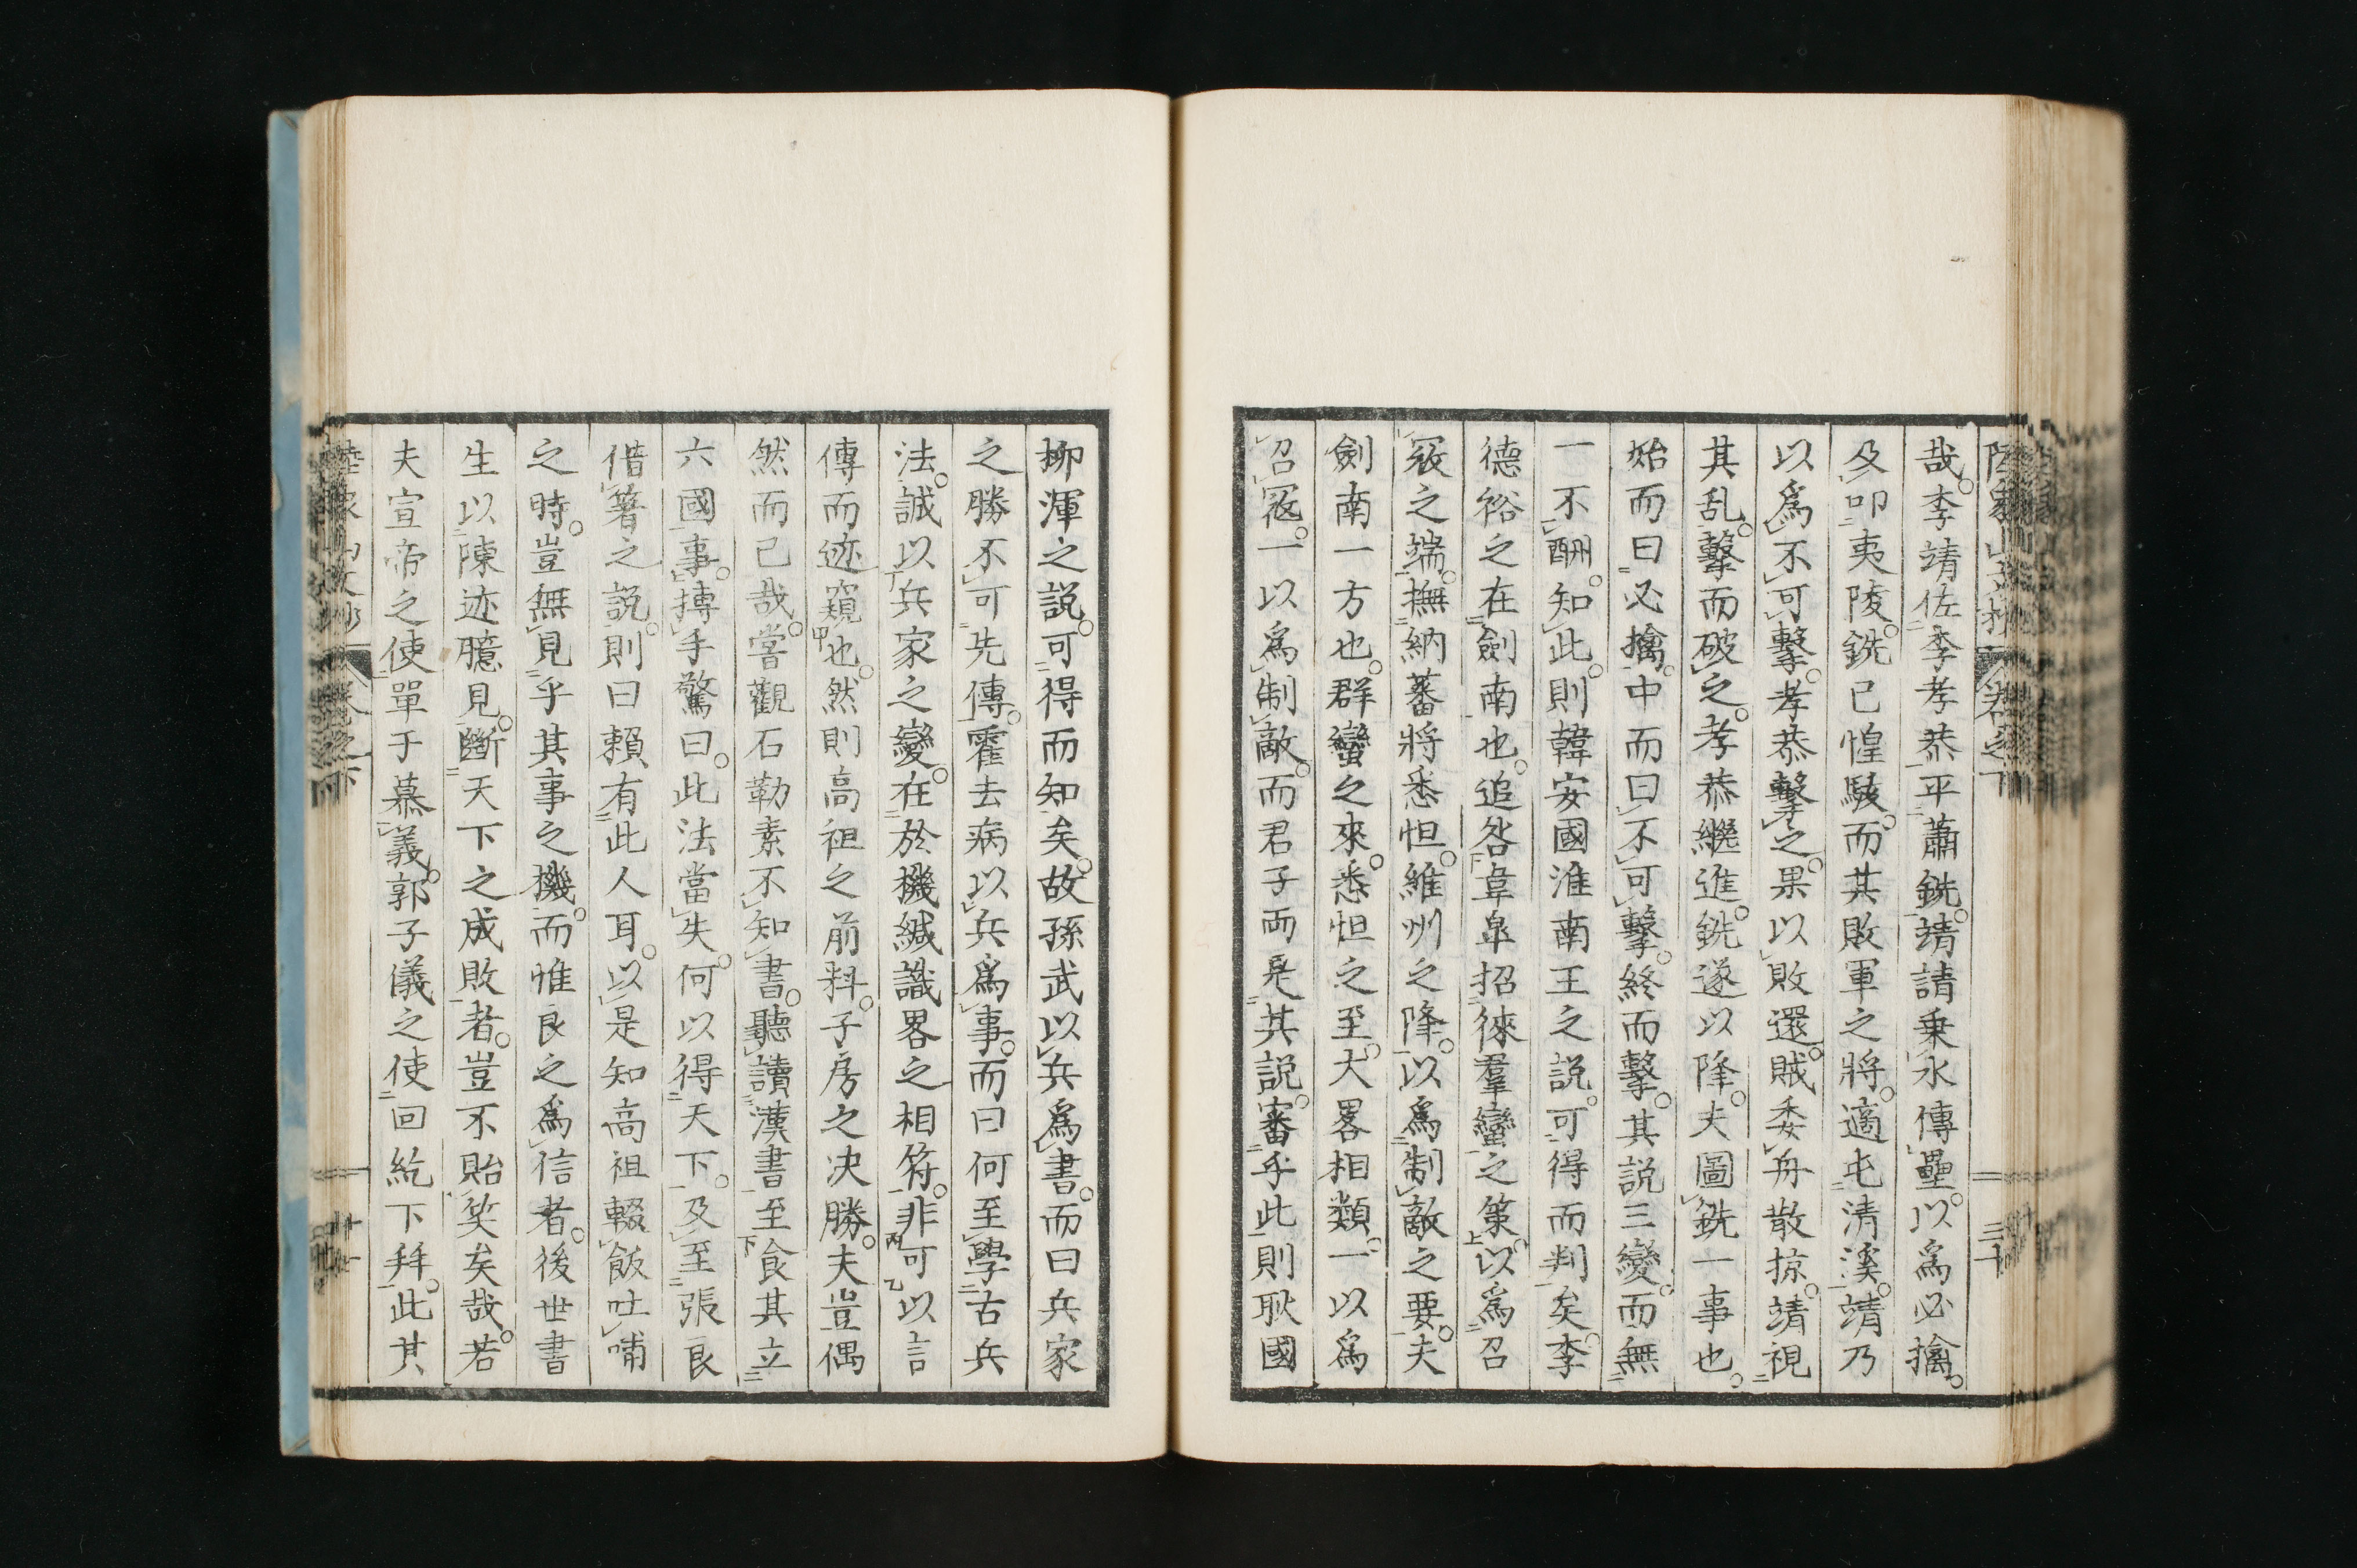 哉。李靖佐李孝恭平蕭銑。靖請乗水傳壘。以爲必擒。
及叩夷陵。銑已惶駭。而其敗軍之將。適屯清溪。靖乃
以爲不可擊。孝恭擊之。果以敗還。賊委舟散掠。靖視
其乱。擊而破之。孝恭継進。銑遂以降。夫圖銑一事也。
始而曰必擒。中而曰不可擊。終而擊。其説三變。而無
一不酬。知此。則韓安國淮南王之説。可得而判矣。李
德裕之在劍南也。追咎韋皐招徠羣蠻之策。以爲召
寇之端。撫納蕃將悉怛。維州之降。以爲制敵之要。夫
劍南一方也。群蠻之來。悉怛之至。大畧相類。一以爲
召寇。一以爲制敵。而君子两是其説。審乎此則耿國
柳渾之説。可得而知矣。故孫武以兵爲書。而曰兵家
之勝不可先傳。霍去病以兵爲事。而曰何至學古兵
法。誠以兵家之變。在於機緘識畧之相符。非可以言
傳而迹窺也。然則高祖之前料。子房之决勝。夫豈偶
然而已哉。嘗觀石勒素不知書。聽讀漢書至食其立
六國事。搏手驚曰。此法當失。何以得天下。及至張良
借箸之説。則曰頼有此人耳。以是知高祖輟飯吐哺
之時。豈無見乎其事之機。而惟良之爲信者。後世書
生以陳迹臆見。斷天下之成敗者。豈不貽笑矣哉。若
夫宣帝之使單于慕義。郭子儀之使回紇下拜。此其